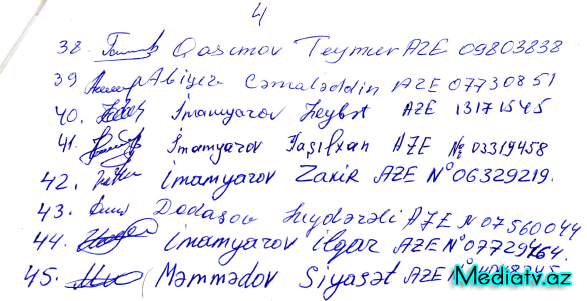 4
38. Qasımov Teymur AZE 09803838
39 Abiyev Cəmaləddin AZE 07730851
40. İmamyarov Heybət AZE 13171545
41. İmamyarov Daşılxan AZE № 03319458
42. İmamyarov Zakir AZE N° 06329219.
43. Dadaşov Heydərəli AZE N 07560044
44. İmamyarov İlqar AZE N° 07729164.
45. Məmmədov Siyasət AZE N°
Mediatv.az